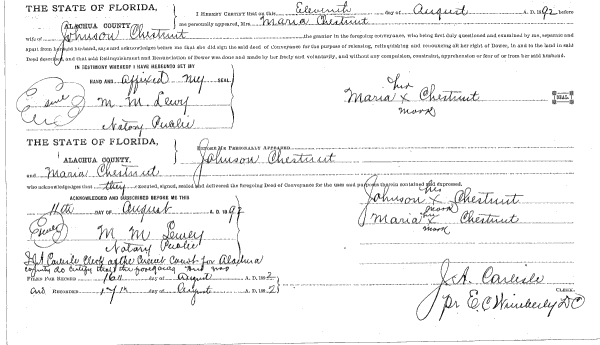 THE STATE OF FLORIDA,
ALACHUA COUNTY.
I HEREBY CERTIFY that on this Eleventh day of August A. D. 1892 before
me personally appeared, Mrs Maria Chestnut
wife of Johnson Chestnut the grantor in the foregoing conveyance, who being first duly questioned and examined by me, separate and
apart from her said husband, says and acknowledges before me that she did sign the said deed of Conveyance for the purpose of releasing, relinquishing and renouncing all her right of Dower, in and to the land in said
Deed described, and that said Relinquishment and Renunciation of Dower was done and made by her freely and voluntarily, and without any compulsion, constraint, apprehension or fear of or from her said husband.
IN TESTIMONY WHEREOF I HAVE HEREUNTO SET MY
HAND AND affixed my SEAL
M. M. Lewy
Notary Public
her
Maria X Chestnut
mark
SEAL
THE STATE OF FLORIDA,
ALACHUA COUNTY.
BEFORE ME PERSONALLY APPEARED
Johnson Chestnut
and Maria Chestnut
who acknowledges that they executed, signed, sealed and delivered the foregoing Deed of Conveyance for the uses and purposes therein contained and expressed.
ACKNOWLEDGED AND SUBSCRIBED BEFORE ME THIS
11th DAY OF August A. D. 1892
M M Lewey
Notary Public
his
Johnson X Chestnut
mark
her
Maria X Chestnut
mark
I J A Carlisle Clerk of the Circuit Court for Alachua
county do certify that the foregoing and was
FILED FOR RECORD 16th day of August A. D. 1892
and RECORDED 17th day of August A. D. 1892
J. A. Carlisle
CLERK.
pr E. C. Wimberly DC